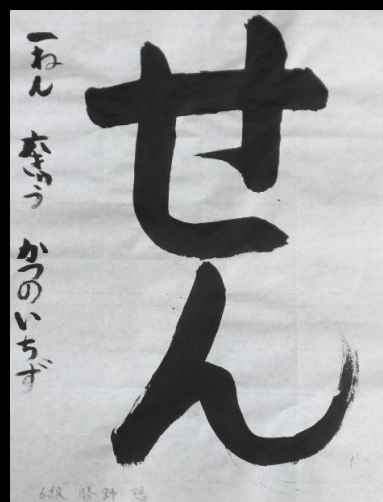 せん
一ねん 六きゅう かつのいちず
6級 勝野